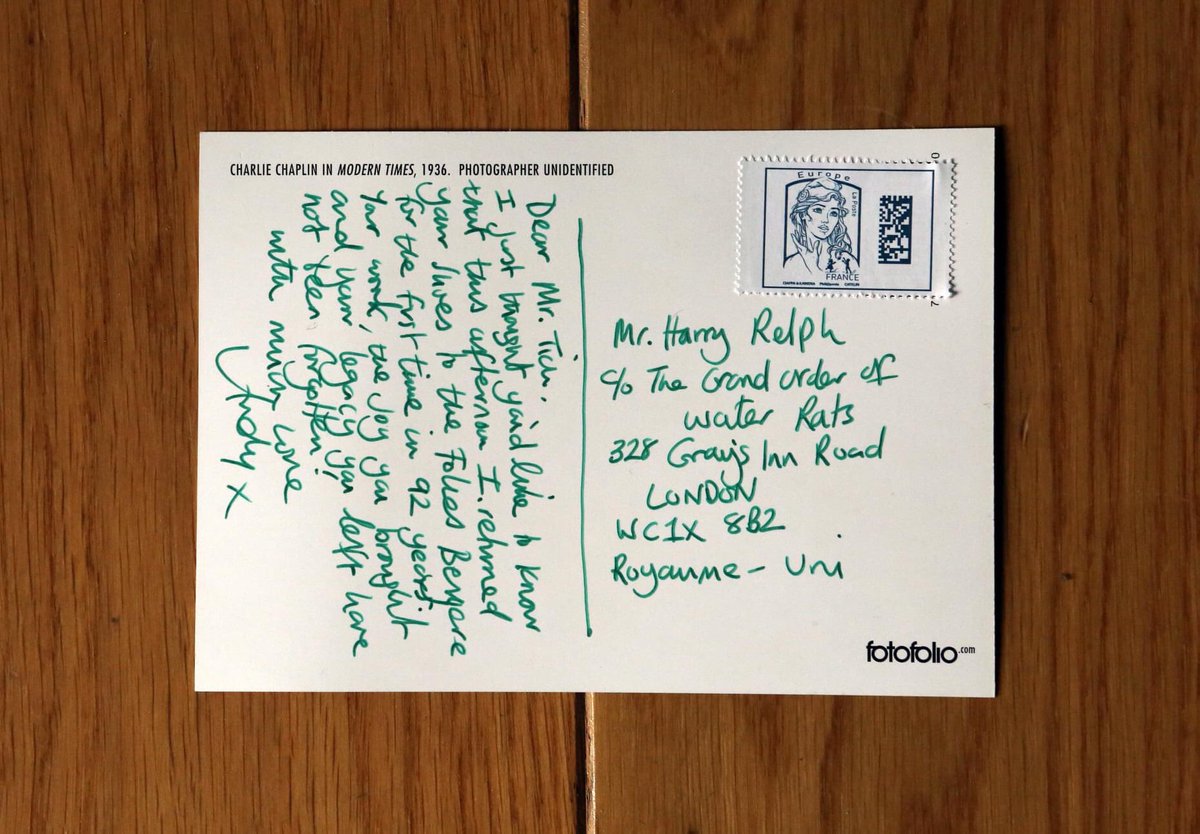 CHARLIE CHAPLIN IN MODERN TIMES, 1936. PHOTOGRAPHER UNIDENTIFIED
Dear Mr. Tich.
I just thought you'd like to know
that this afternoon I returned
your shoes to the Folies Bergere
for the first time in 92 years!
Your work, the joy you brought
and your legacy you left have
not been forgotten!
with much love
Andy x
Europe
La Poste
FRANCE
CIAPPA & KAWENA Phil@poste CATELIN
Mr. Harry Relph
c/o The Grand Order of
Water Rats
328 Gray's Inn Road
LONDON
WC1X 8BZ
Royaume-Uni
fotofolio.com